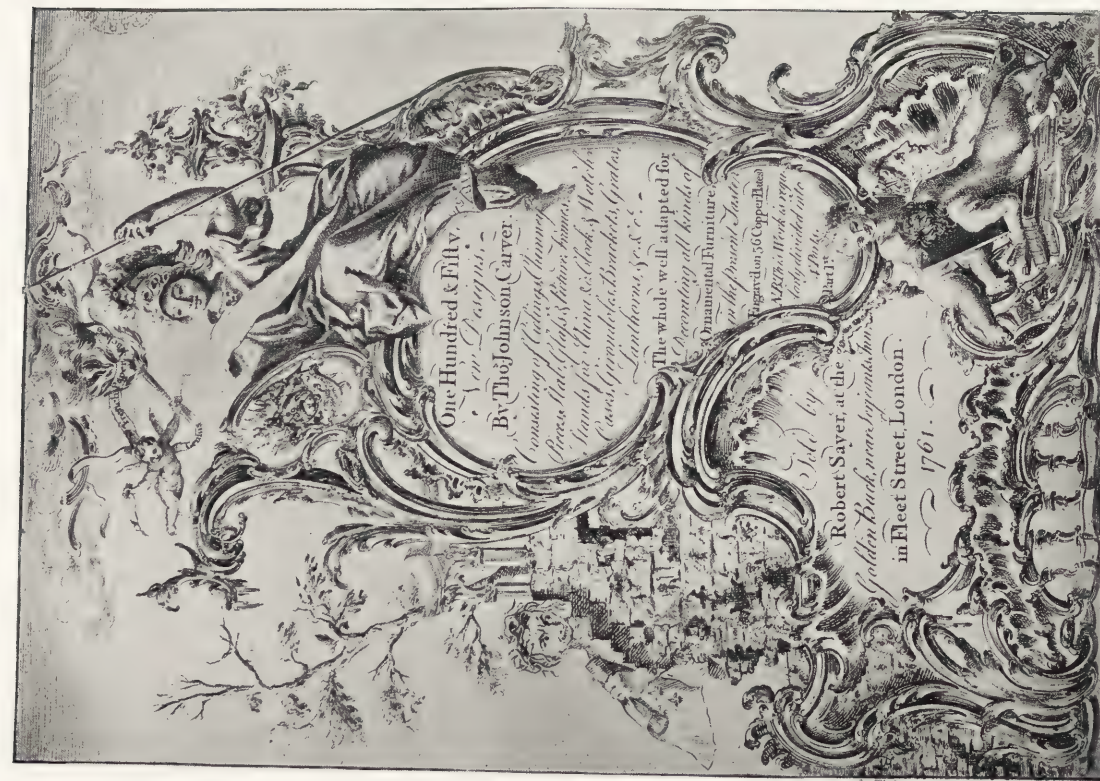 One Hundred & Fifty.
New Designs
By Tho.s Johnson Carver.
Consisting of Ceilings, Chimney
Pieces, Slab, Glass & Picture frames,
Stands for China &c. Clock, & Watch
Cases, Girondoles, Brackets, Grates,
Lanthorns, &c. &c.
The whole well adapted for
Decorating all kinds of
Ornamental Furniture,
in the present Taste
Engrav'd on 56 Copper Plates
NB This Work as may
be divided into
4 Parts.
Sold by
Robert Sayer, at the
Golden Buck, near Serjeants Inn
in Fleet Street, London.
1761.